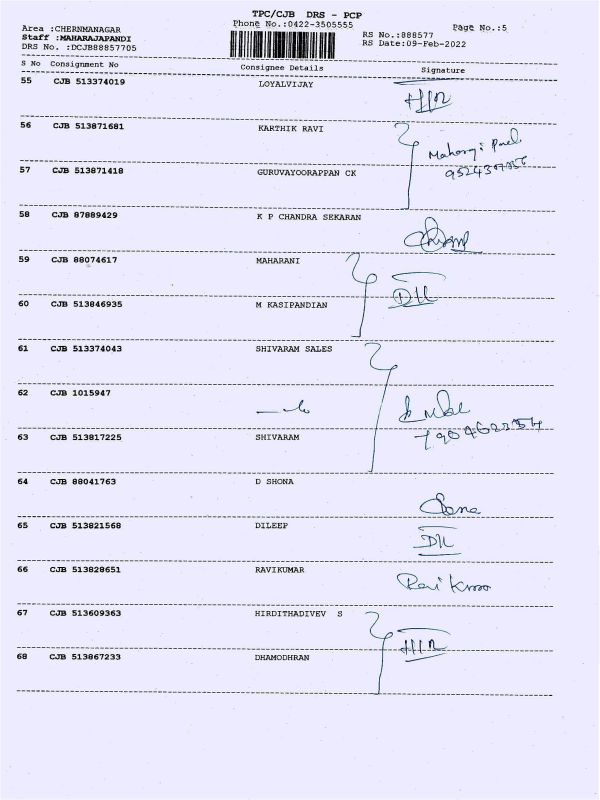 TPC/CJB DRS - PCP
Area :CHERNMANAGAR Phone No.:0422-3505555 Page No.:5
Staff :MAHARAJAPANDI RS No.:888577
DRS No. :DCJB88857705 RS Date:09-Feb-2022
S No Consignment No Consignee Details Signature
55 CJB 513374019 LOYALVIJAY
56 CJB 513871681 KARTHIK RAVI
57 CJB 513871418 GURUVAYOORAPPAN CK
58 CJB 87889429 K P CHANDRA SEKARAN
59 CJB 88074617 MAHARANI
60 CJB 513846935 M KASIPANDIAN
61 CJB 513374043 SHIVARAM SALES
62 CJB 1015947
63 CJB 513817225 SHIVARAM
64 CJB 88041763 D SHONA
65 CJB 513821568 DILEEP
66 CJB 513828651 RAVIKUMAR
67 CJB 513609363 HIRDITHADIVEV S
68 CJB 513867233 DHAMODHRAN